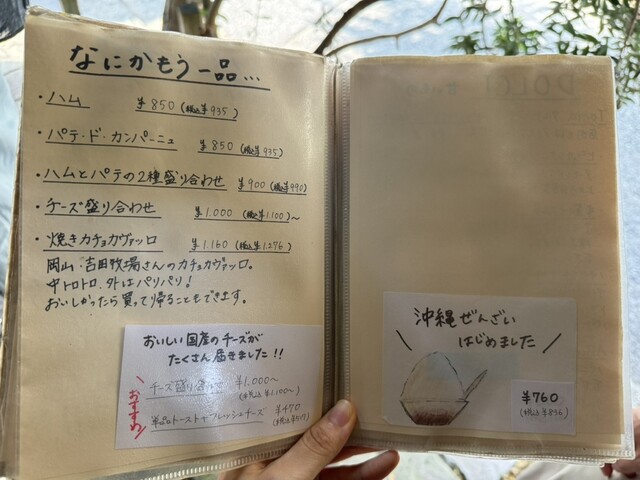 なにかもう一品...
・ハム ¥850 (税込¥935)
・パテ・ド・カンパーニュ ¥850 (税込¥935)
・ハムとパテの2種盛り合わせ ¥900 (税込¥990)
・チーズ盛り合わせ ¥1.000 (税込¥1.100)〜
・焼きカチョカヴァッロ ¥1.160 (税込¥1.276)
岡山・吉田牧場さんのカチョカヴァッロ。
中トロトロ、外はパリパリ!
おいしかったら買って帰ることもできます。
おいしい国産のチーズが
たくさん届きました!!
おすすめ
チーズ盛り合わせ ¥1.000〜
(税込¥1.100〜)
単品トースト+フレッシュチーズ ¥470
(税込¥517)
沖縄ぜんざい
はじめました
¥760
(税込¥836)
DOLCI